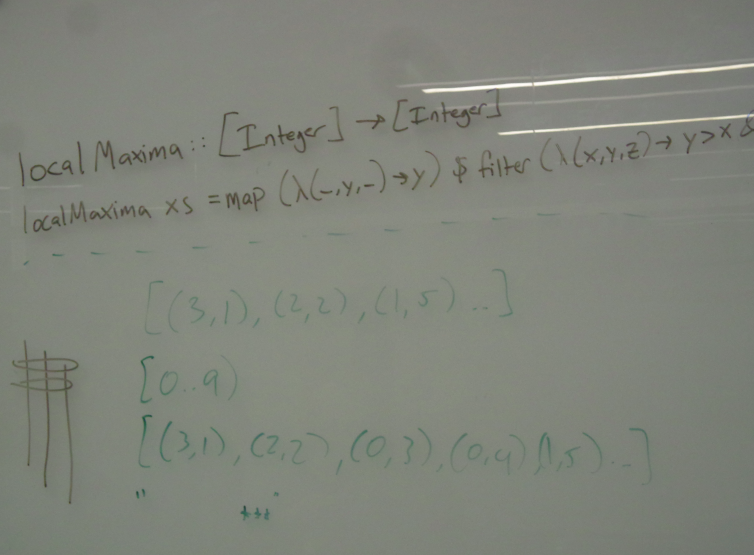 localMaxima :: [Integer] → [Integer]
localMaxima xs = map (λ(-,y,-)→y) $ filter (λ(x,y,z)→ y>x &
[(3,1), (2,2), (1,5) ..]
[0..9)
[(3,1), (2,2), (0,3), (0,4) (1,5)...]
" *** "